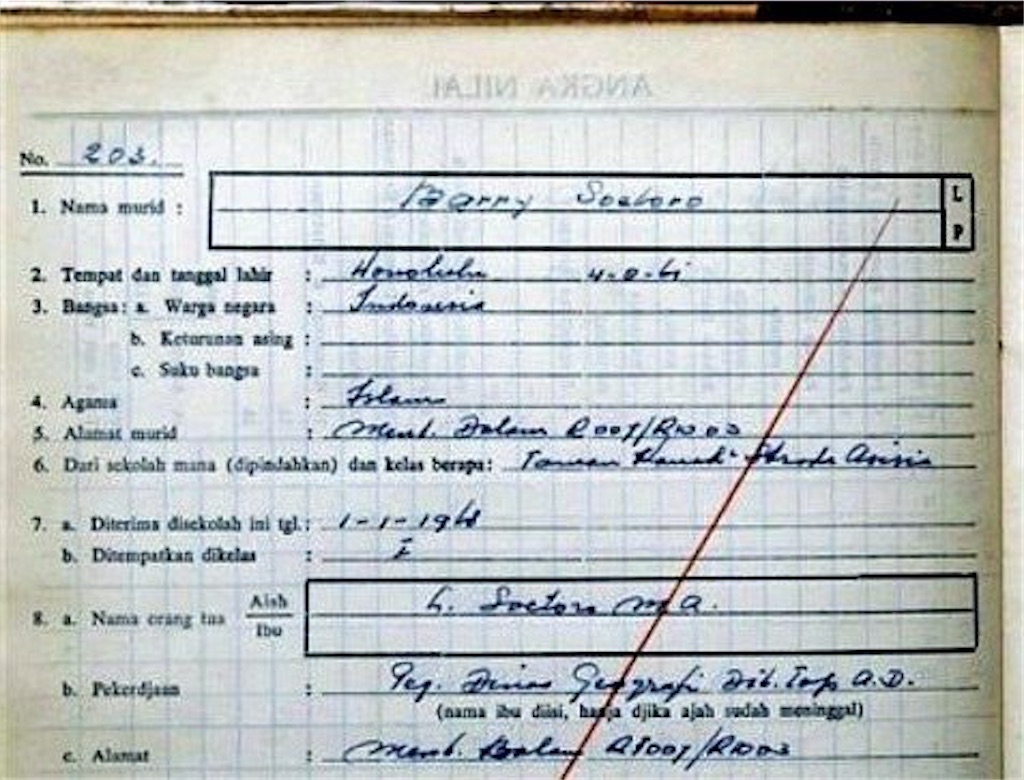 ANGKA NILAI
No. 203.
1. Nama murid : Barry Soetoro L
P
2. Tempat dan tanggal lahir : Honolulu 4-8-61
3. Bangsa : a. Warga negara : Indonesia
b. Keturunan asing :
c. Suku bangsa :
4. Agama : Islam
5. Alamat murid : Ment. Dalam R007/R1003
6. Dari sekolah mana (dipindahkan) dan kelas berapa : Taman Kanak² Strada Asisia
7. a. Diterima disekolah ini tgl. : 1-1-1968
b. Ditempatkan dikelas : I
8. a. Nama orang tua Aiah L. Soetoro M.A.
Ibu
b. Pekerdjaan : Peg. Dinas Geografi Dit. Top. A.D.
(nama ibu diisi, hanja djika ajah sudah meninggal)
c. Alamat : Ment. Dalam